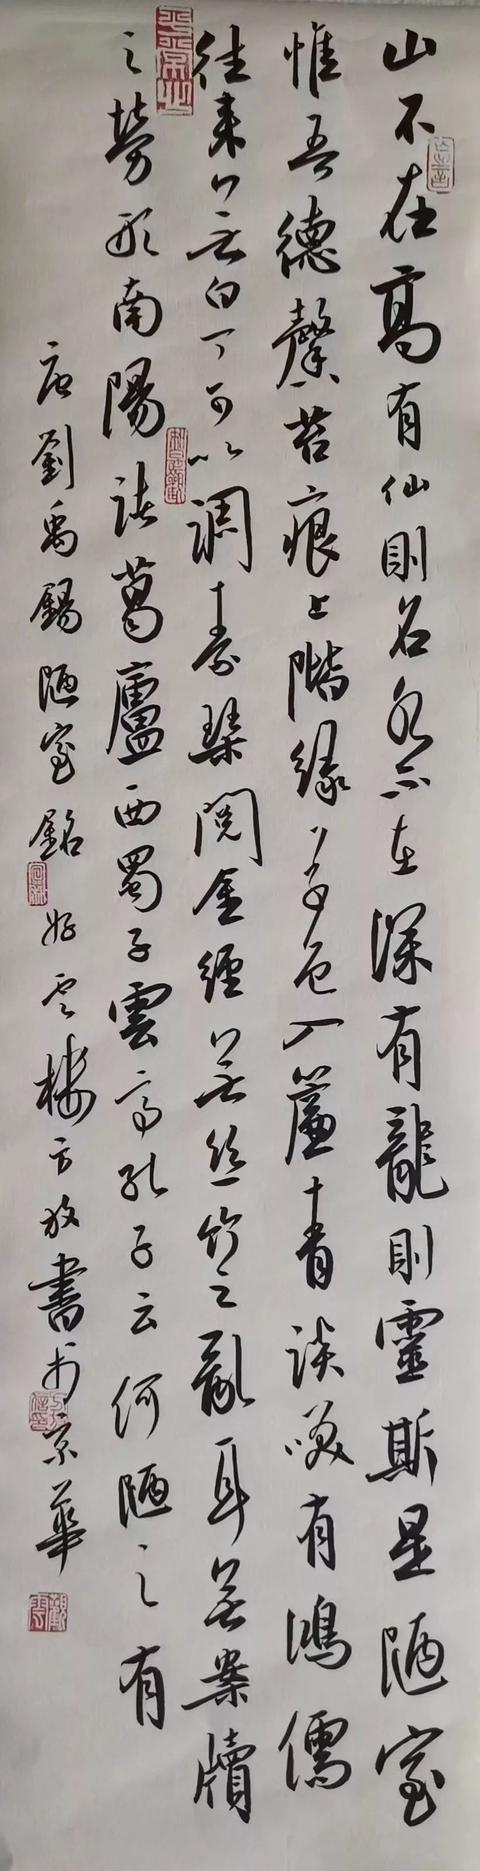 山不在高有仙則名水不在深有龍則靈斯是陋室
惟吾德馨苔痕上階緑草色入簾青談笑有鴻儒
往來無白丁可以調素琴閲金經無絲竹之亂耳無案牘
之勞形南陽諸葛廬西蜀子雲亭孔子云何陋之有
唐劉禹錫陋室銘 好雲樓方放書於京華